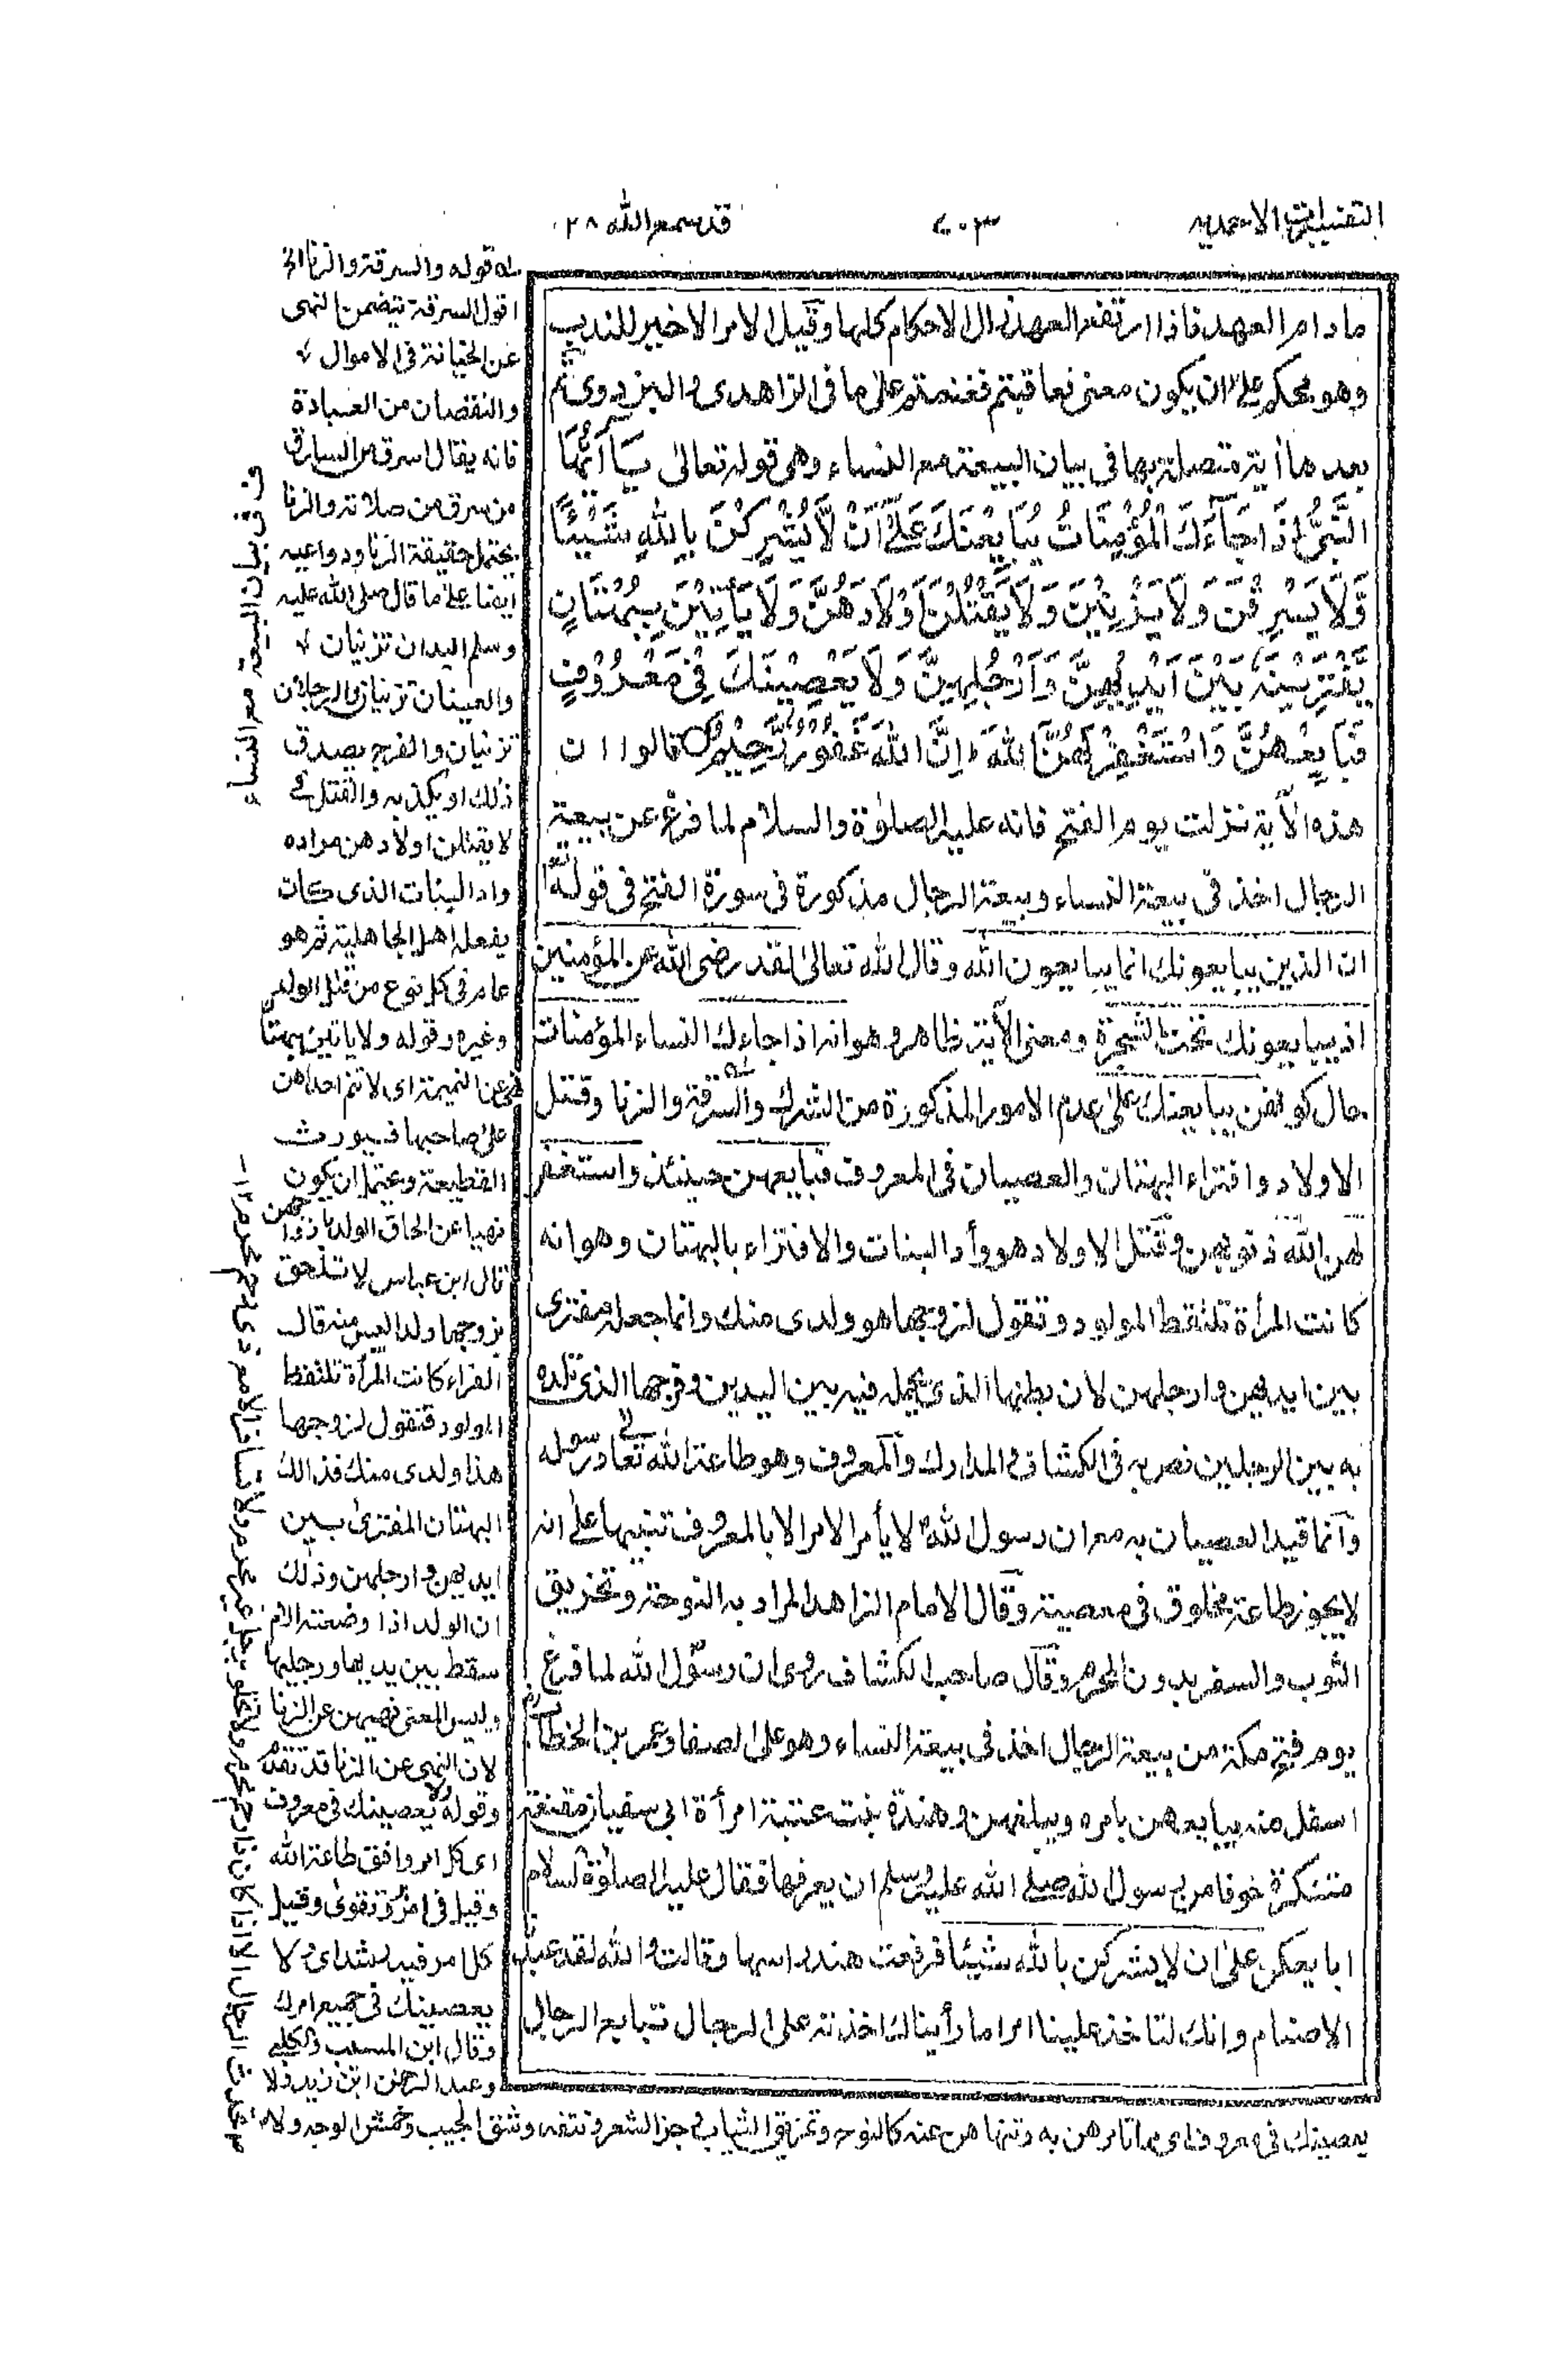 التفسيرات الاحمديه
٧٠٣
قد سمع الله ٢٨
ما دام العهد فاذا ارتفع العهد زال الاحكام كلها وقيل الامر الاخير للندب
وهو محكم على ان يكون معنى فعاقبتم فغنمتم على ما فى الزاهدى والبزدوى ثم
بعدها أية متصلة بها فى بيان البيعة مع النساء وهى قوله تعالىٰ يٰٓاَيُّهَا
النَّبِىُّ اِذَا جَآءَكَ الْمُؤْمِنٰتُ يُبَايِعْنَكَ عَلٰٓى اَنْ لَّا يُشْرِكْنَ بِاللّٰهِ شَيْئًا
وَّلَا يَسْرِقْنَ وَلَا يَزْنِيْنَ وَلَا يَقْتُلْنَ اَوْلَادَهُنَّ وَلَا يَأْتِيْنَ بِبُهْتَانٍ
يَّفْتَرِيْنَهٗ بَيْنَ اَيْدِيْهِنَّ وَاَرْجُلِهِنَّ وَلَا يَعْصِيْنَكَ فِىْ مَعْرُوْفٍ
فَبَايِعْهُنَّ وَاسْتَغْفِرْ لَهُنَّ اللّٰهَ ؕ اِنَّ اللّٰهَ غَفُوْرٌ رَّحِيْمٌ ○ قالوا ان
هذه الأية نزلت يوم الفتح فانه عليه الصلوٰة والسلام لما فرغ عن بيعة
الرجال اخذ فى بيعة النساء وبيعة الرجال مذكورة فى سورة الفتح فى قوله تعالىٰ
ان الذين يبايعونك انما يبايعون الله وقال الله تعالىٰ لقد رضى الله عن المؤمنين
اذ يبايعونك تحت الشجرة ومعنى الأية ظاهر وهو انه اذا جاءك النساء المؤمنات
حال كونهن يبايعنك علىٰ عدم الامور المذكورة من الشرك والسرقة والزنا وقتل
الاولاد وافتراء البهتان والعصيان فى المعروف فبايعهن حينئذ واستغفر
لهن الله ذنوبهن وقتل الاولاد هو وأد البنات والافتراء بالبهتان وهو انه
كانت المرأة تلتقط المولود وتقول لزوجها هو ولدى منك وانما جعله مفترى
بين ايديهن وارجلهن لان بطنها الذى يحمله فيه بين اليدين وفرجها الذى تلده
به بين الرجلين نص به فى الكشاف والمدارك والمعروف وهو طاعة الله تعالىٰ ورسوله
وانما قيد العصيان به مع ان رسول اللهؐ لا يأمر الامر الا بالمعروف تنبيها علىٰ انه
لا يجوز طاعة مخلوق فى معصية وقال الامام الزاهد المراد به النوحة وتخريق
الثوب والسفر بدون المحرم وقال صاحب الكشاف روى ان رسول الله لما فرغ
يوم فتح مكة من بيعة الرجال اخذ فى بيعة النساء وهو على الصفا وعمر بن الخطاب
اسفل منه يبايعهن بامره ويبلغهن وهندة بنت عتبة امرأة ابى سفيان مقنعة
متنكرة خوفا من رسول الله صلے الله عليه وسلم ان يعرفها فقال عليه الصلوٰة والسلام
ابايعكن علىٰ ان لا يشركن بالله شيئا فرفعت هند راسها وقالت والله لقد عبدنا
الاصنام وانك لتاخذ علينا امرا ما رأيناك اخذته على الرجال تبايع الرجال
له قوله والسرقة والزنا الخ
اقول السرقة يتضمن النهى
عن الخيانة فى الاموال
والنقصان من العبادة
فانه يقال اسرق من السارق
من سرق من صلاته والزنا
يحتمل حقيقة الزنا ودواعيه
ايضا على ما قال صلى الله عليه
وسلم اليدان تزنيان
والعينان تزنيان والرجلان
تزنيان والفرج يصدق
ذلك او يكذبه والقتل فى
لا يقتلن اولادهن مراده
واد البنات الذى كان
يفعله اهل الجاهلية ثم هو
عام فى كل نوع من قتل الولد
وغيره وقوله ولا ياتين ببهتان
نهى عن النميمة اى لا تنم احداهن
على صاحبها فيورث
القطيعة ويحتمل ان يكون
نهيا عن الحاق الولد بازواجهن
قال ابن عباس لا تلحق
بزوجها ولدا ليس منه قال
الفراء كانت المرأة تلتقط
المولود فتقول لزوجها
هذا ولدى منك فذالك
البهتان المفترىٰ بين
ايديهن وارجلهن وذلك
ان الولد اذا وضعته الام
سقط بين يديها ورجليها
وليس المعنى نهيهن عن الزنا
لان النهى عن الزنا قد تقدم
وقوله ولا يعصينك فى معروف
اى كل امر وافق طاعة الله
وقيل فى امر بر وتقوىٰ وقيل
كل امر فيه رشد اى لا
يعصينك فى جميع امرك
وقال ابن المسيب والكلبى
وعبد الرحمٰن ابن زيد ولا
يعصينك فى معروف اى مما تامرهن به وتنهاهن عنه كالنوح وتمزيق الثياب وجز الشعر ونتفه وشق الجيب وخمش الوجه ولا
ف فى بيان البيعة مع النساء
تحدث الرجال الا اذا كان ذا محرم ولا تخلو برجل غير محرم ولا تسافر الا مع ذى رحم محرم ١٢